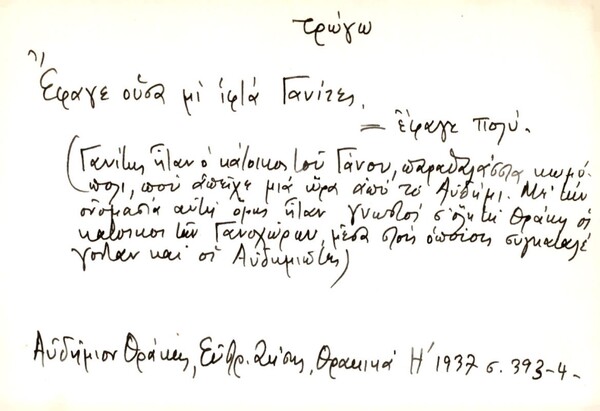 τρώγω
Ἔφαγε οὕσα μὶ ἱφτά Γανίτες.
= ἔφαγε πολύ.
(Γανίτης ἦταν ὁ κάτοικος τοῦ Γάνου, παραθαλάσσια κωμό
πολι, ποὺ ἀπεῖχε μιὰ ὥρα ἀπὸ τὸ Αὐδήμι. Μὲ τὴν
ὀνομασία αὐτὴ ὅμως ἦταν γνωστοὶ σ' ὅλη τὴ Θράκη οἱ
κάτοικοι τῶν Γανοχώρων, μέσα στοὺς ὁποίους συγκαταλέ
γονταν καὶ οἱ Αὐδημιῶτες)
Αὐδήμιον Θράκης, Εὐθρ. Ζήσης, Θρακικά Η' 1937 σ. 393-4-